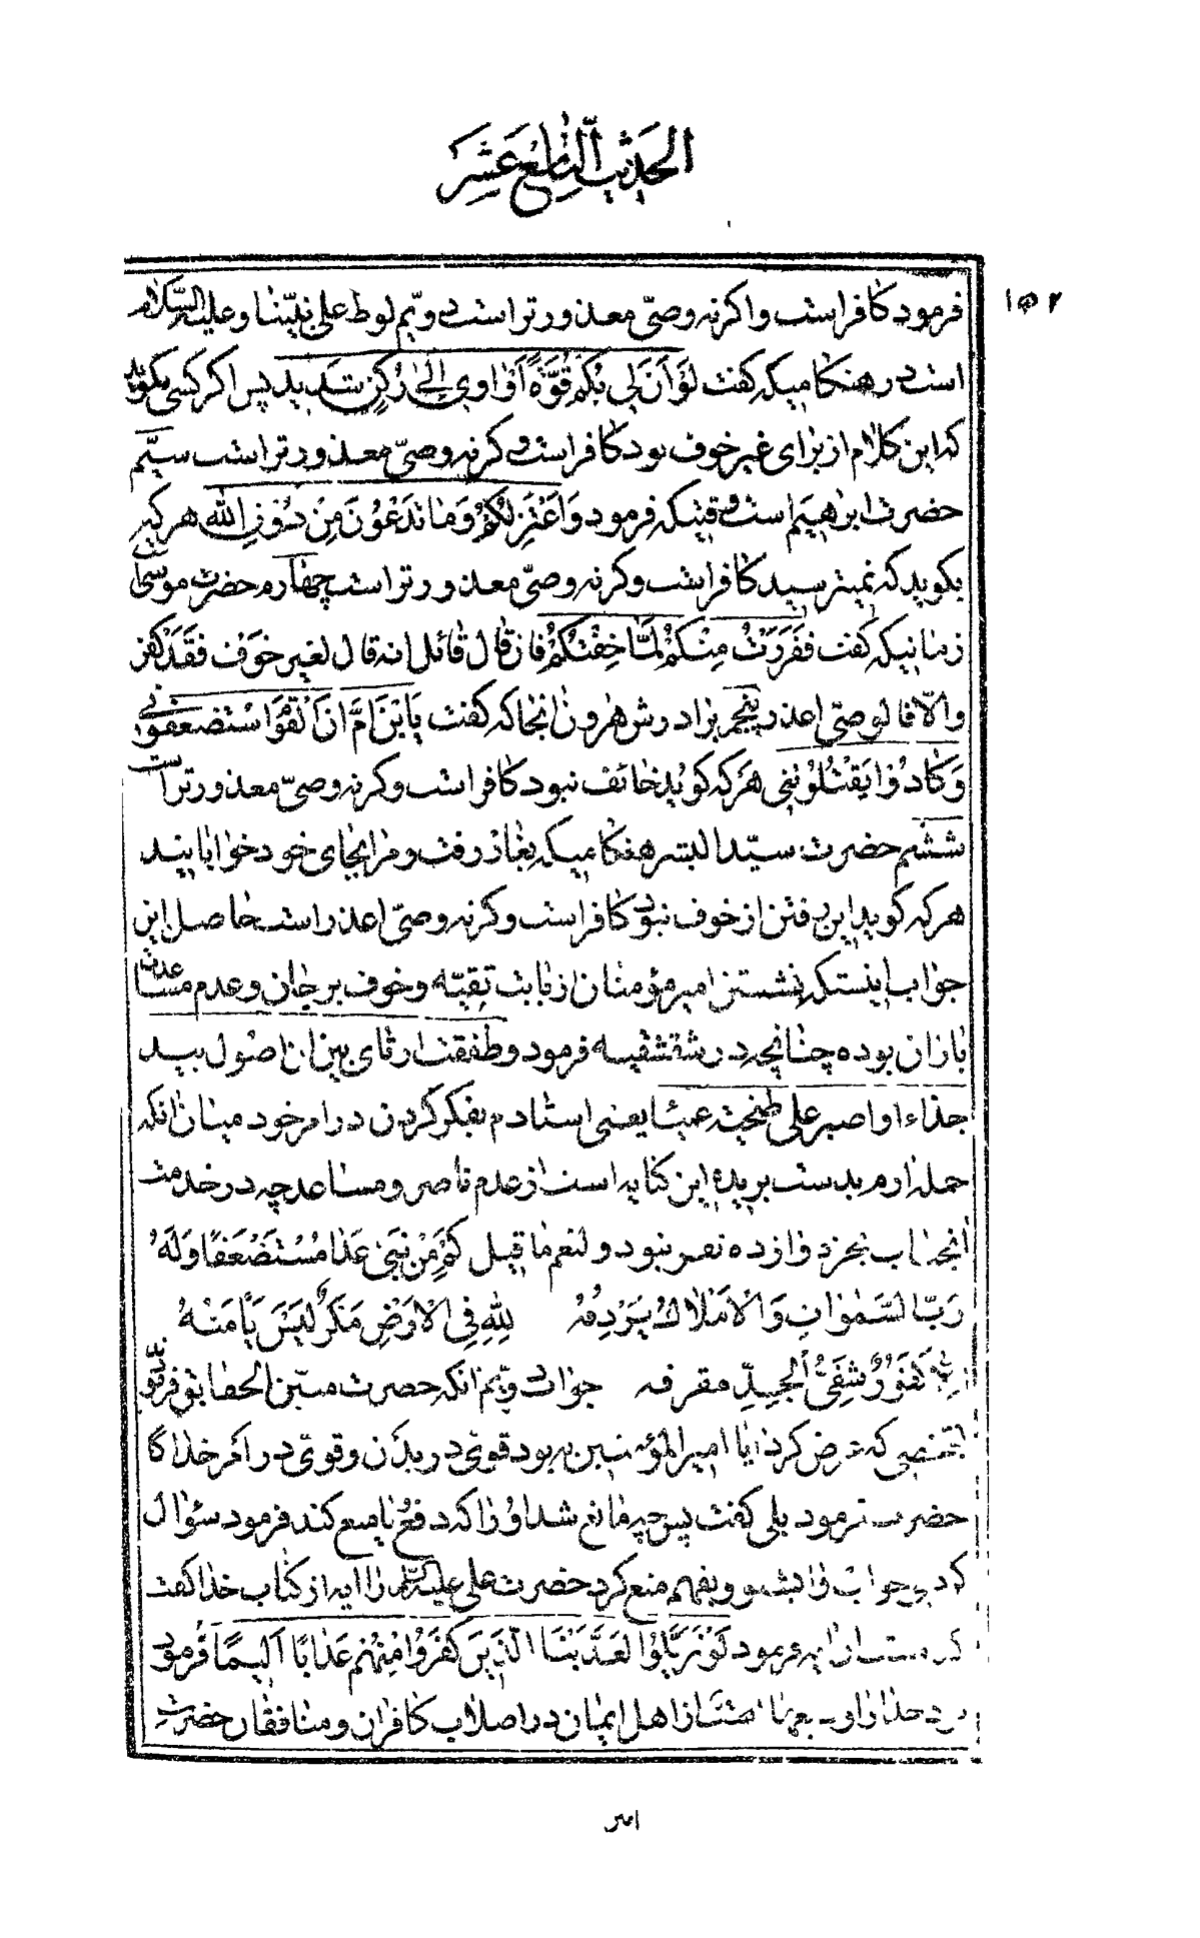 الحدیث الرابع عشر
۱۵۲
فرمود کافر است واکرنه وصیّ معذورتر است دویّم لوط علی نبیّنا وعلیه السّلام
است در هنکامیکه کفت لَوْ اَنَّ لِی بِکُمْ قُوَّةً اَوْ اوِی اِلٰی رُکْنٍ شَدِیدٍ پس اکر کسی بکوید
که این کلام از برای غیر خوف بود کافر است و کرنه وصیّ معذورتر است سیّم
حضرت ابرهیم است وقتیکه فرمود وَاَعْتَزِلُکُمْ وَمَا تَدْعُوْنَ مِنْ دُوْنِ اللّٰهِ هر که
بکوید که نمیترسید کافر است وکرنه وصیّ معذورتر است چهارم حضرت موسی است
زمانیکه کفت فَفَرَرْتُ مِنْکُمْ لَمَّا خِفْتُکُمْ فان قال قائل انه قال لغیر خوف فَقَدْ کفر
والّا فالوصیّ اعذر پنجم برادرش هرون انجا که کفت یَا بْنَ اُمَّ اِنَّ الْقَوْمَ اسْتَضْعَفُوْنِی
وَکَادُوْا یَقْتُلُوْنَنِی هَر که کوید خائف نبود کافر است وکرنه وصیّ معذورتر است
ششم حضرت سیّد البشر هنکامیکه بغار رفت ومرا بجای خود خوابانید
هر که کوید این رفتن از خوف نبود کافر است وکرنه وصیّ اعذر است حاصل این
جواب اینستکه نشستن امیر مؤمنان از بابت تقیّه وخوف بر جان وعدم مساعدت
یاران بوده چنانچه در شقشقیه فرمود وطفقت ارتای بین ان اصول بید
جذاء او اصبر علی طخیة عمیاء یعنی استادم بفکر کردن در امر خود میان انکه
حمله ارم بدست بریده این کنایه است از عدم ناصر ومساعد چه در خدمت
انجناب بجز دوازده نفر نبود ولنعم ما قیل کَمْ مِنْ نَبِیّ غَدَا مُسْتَضْعَفًا وَلَهُ
رَبّ السَّمٰوَاتِ وَالْاَمْلَاكُ یَرْدِفُهُ لِلّٰهِ فِی الْاَرْضِ مَکْرٌ لَیْسَ یَاْمَنُهُ
کَفُوْرٌ شَقِیُّ الْجِدِّ مقرفه جواب دویّم انکه حضرت مبیّن الحقایق فرمود
بشخصی که عرض کرد ایا امیر المؤمنین نبود قوی در بدن وقوی در امر خدا کا
حضرت فرمود بلی کفت پس چه مانع شد او را که دفع یا منع کند فرمود سؤال
کردی جواب را بشنو وبفهم منع کرد حضرت علی علیه السّلام را ایه از کتاب خدا کفت
کدام است ان ایه فرمود لَوْ تَزَیَّلُوْا لَعَذَّبْنَا الَّذِیْنَ کَفَرُوْا مِنْهُمْ عَذَابًا اَلِیْمًا فرمود
از اهل ایمان در اصلاب کافران ومنافقان حضرت
امیر